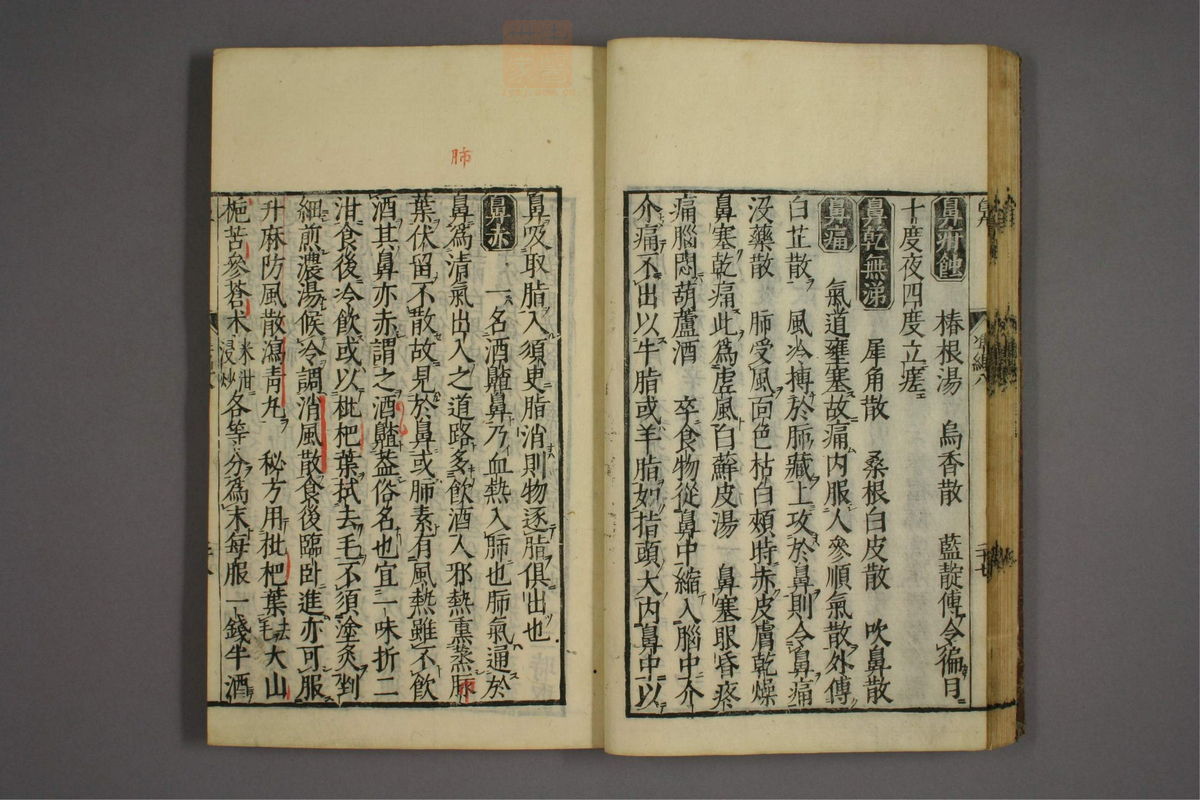 鼻疳蝕 椿根湯 烏香散 藍靛傅令徧日
十度夜四度立瘥
鼻乾無涕 犀角散 桑根白皮散 吹鼻散
鼻痛 氣道壅塞故痛内服人參順氣散外傅
白芷散 風冷搏於肺藏上攻於鼻則令鼻痛
没藥散 肺受風面色枯白頰時赤皮膚乾燥
鼻塞乾痛此為虚風白蘚皮湯 鼻塞眼昏疼
痛腦悶葫蘆酒 卒食物從鼻中縮入腦中介
介痛不出以牛脂或羊脂如指頭大内鼻中以
鼻吸取脂入須臾脂消則物逐脂俱出也
鼻赤 一名酒齇鼻乃血熱入肺也肺氣通於
鼻為清氣出入之道路多飲酒人邪熱熏蒸肺
葉伏留不散故見於鼻或肺素有風熱雖不飲
酒其鼻亦赤謂之酒齇葢俗名也宜一味折二
泔食後冷飲或以枇杷葉拭去毛不須塗炙剉
細煎濃湯候冷調消風散食後臨卧進亦可服
升麻防風散瀉青丸 秘方用枇杷葉去毛大山
梔苦參蒼术米泔浸炒各等分為末每服一錢半酒
肺